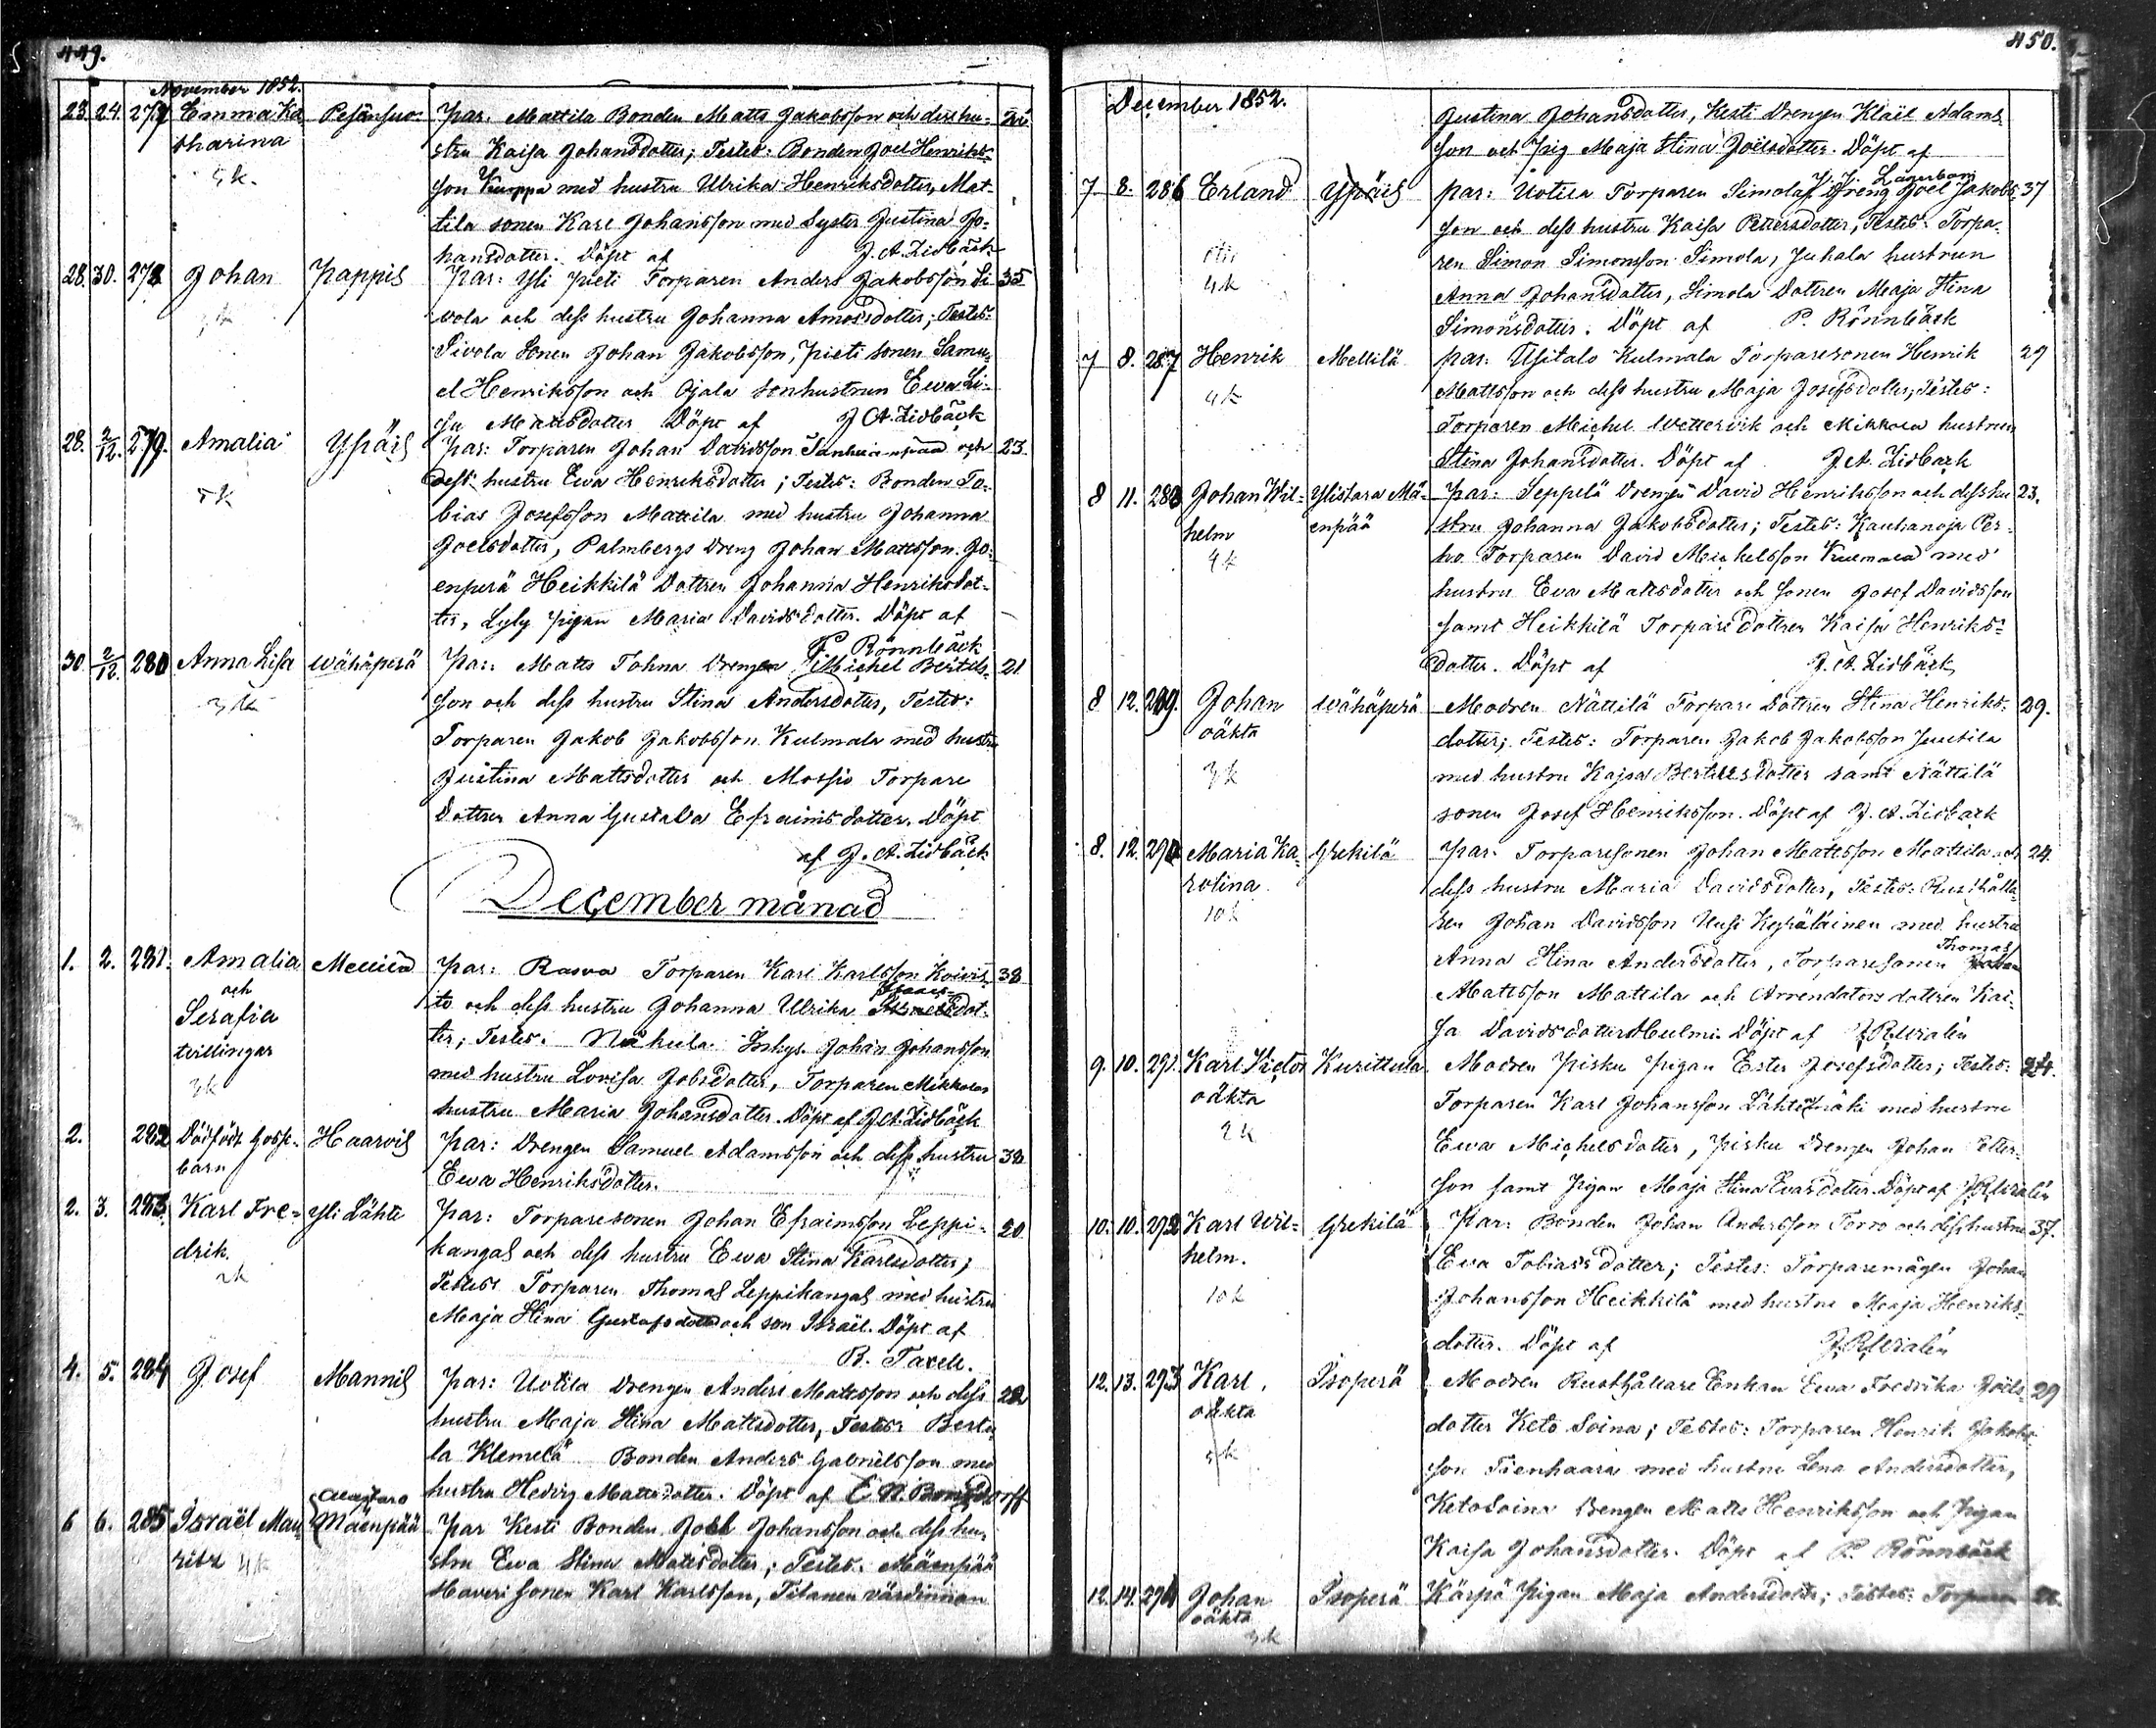 449.
November 1852.
23. 24. 277 Emma Ka- Pesänsuo Par. Mattila Bonden Matts Jakobsson och dess hu-
tharina stru Kaisa Johansdotter; Testes: Bonden Joel Henriks-
5 k. son Knuppa med hustru Ulrika Henriksdotter, Mat-
tila sonen Karl Johansson med Syster Justina Jo-
hansdotter. Döpt af J. A. Lidbäck
28. 30. 278 Johan Pappis Par: Yli Pieti Torparen Anders Jakobsson Si- 35
vola och dess hustru Johanna Amosdotter; Testes:
Sivola Sonen Johan Jakobsson, Pieti sonen Samu-
el Henriksson och Ojala sonhustrun Ewa Li-
sa Mattsdotter Döpt af J. A. Lidbäck
28. 2/12. 279. Amalia Ypäis Par: Torparen Johan Davidsson och 23.
5 k dess hustru Ewa Henriksdotter; Testes: Bonden To-
bias Josefsson Mattila med hustru Johanna
Joelsdotter, Palmbergs Dreng Johan Mattsson Jo-
enperä Heikkilä Dottren Johanna Henriksdot-
ter, Lyly pigan Maria Davidsdotter. Döpt af
P. Rönnbäck
30. 2/12. 280 Anna Lisa Wähäperä Par: Matts Tohna Drengen Michel Bertils- 21
3 k son och dess hustru Stina Andersdotter, Testes:
Torparen Jakob Jakobsson Kulmala med hustru
Justina Mattsdotter och Mossio Torpare
Dottren Anna Gustava Efraimsdotter. Döpt
af J. A. Lidbäck
December månad
1. 2. 281. Amalia Mellilä Par: Rasva Torparen Karl Karlsson Koivis- 38
och Serafia to och dess hustru Johanna Ulrika Isaacsdot-
tvillingar ter; Testes: Inhys. Johan Johansson
3k med hustru Lovisa Jobsdotter, Torparen Mikkolas
hustru Maria Johansdotter. Döpt af J. A. Lidbäck
2. 282 Dödfödt Goss- Haarois Par: Drengen Samuel Adamsson och dess hustru 38
barn Ewa Henriksdotter.
2. 3. 283. Karl Fre- Yli Lähte Par: Torparesonen Johan Efraimsson Leppi- 20
drik kangas och dess hustru Ewa Stina Karlsdotter;
2k Testes: Torparen Thomas Leppikangas med hustru
Maja Stina Gustafsdotter och son Israël. Döpt af
B. Taxell.
4. 5. 284 Josef Mannis Par: Uotila Drengen Anders Mattsson och dess 22
hustru Maja Stina Mattsdotter, Testes: Bertu-
la Klemelä Bonden Anders Gabrielsson med
hustru Hedvig Mattsdotter. Döpt af E. N. Bonsdorff
6 6. 285 Israël Mau- Alastaro Mäenpää Par Kesti Bonden Joel Johansson och dess hu-
ritz 4k stru Ewa Stina Mattsdotter; Testes: Mäenpää
Haveri sonen Karl Karlsson, Titanen värdinnan
450.
December 1852.
Justina Johansdotter, Kesti Drengen Klaës Adams-
son och Pig Maja Stina Joëlsdotter. Döpt af
J. J. Lagerbom
7 8. 286 Erland Ypäis Par: Uotila Torparen Simolas Dreng Joël Jakobs- 37
son och dess hustru Kaisa Pettersdotter, Testes: Torpa-
ren Simon Simonsson Simola, Juhala hustrun
4k Anna Johansdotter, Simola Dottren Maja Stina
Simonsdotter. Döpt af P. Rönnbäck
7 8. 287 Henrik Mellilä Par: Usitalo Kulmala Torparesonen Henrik 29
4k Mattsson och dess hustru Maja Josefsdotter; Testes:
Torparen Michel Wettervik och Mikkola hustrun
Stina Johansdotter. Döpt af J. A. Lidbäck
8 11. 288 Johan Wil- Ylistaro Mä- Par: Seppelä Drengen David Henriksson och dess hu- 23.
helm enpää stru Johanna Jakobsdotter; Testes: Kauhanoja Per-
4k ho Torparen David Michelsson Kulmala med
hustru Eva Mattsdotter och sonen Josef Davidsson
samt Heikkilä Torpare dottren Kaisa Henriks-
dotter. Döpt af J. A. Lidbäck
8 12. 289. Johan Wähäperä Modren Nättilä Torpare Dottren Stina Henriks- 29.
oäkta dotter; Testes: Torparen Jakob Jakobsson Juutila
3k med hustru Kajsa Bertilsdotter samt Nättilä
sonen Josef Henriksson. Döpt af J. A. Lidbäck
8. 12. 290 Maria Ka- Yrekilä Par: Torparesonen Johan Mattsson Mattila och 24.
rolina dess hustru Maria Davidsdotter, Testes: Rusthålla-
10k ren Johan Davidsson Uusi Kypäläinen med hustru
Anna Stina Andersdotter, Torparesonen Thomas
Mattsson Mattila och Arrendators dottren Kai-
sa Davidsdotter Hulmi. Döpt af
9. 10. 291. Karl Victor Kurittula Modren Pisku Pigan Ester Josefsdotter; Testes: 24.
oäkta Torparen Karl Johansson Lähteenmäki med hustru
2k Ewa Michelsdotter, Pisku Drengen Johan Petters-
son samt Pigan Maja Stina Evasdotter. Döpt af
10. 10. 292 Karl Wil- Yrekilä Par: Bonden Johan Andersson Torro och dess hustru 37.
helm. Eva Tobiasdotter; Testes: Torparemågen Johan
10k Johansson Heikkilä med hustru Maja Henriks-
dotter. Döpt af
12. 13. 293 Karl Isoperä Modren Rusthållare Enkan Ewa Fredrika Joëls- 29
oäkta dotter Keto Soina; Testes: Torparen Henrik Jakobs-
5k son Tienhaara med hustru Lena Andersdotter,
KetoSoina Drengen Matts Henriksson och Pigan
Kaisa Johansdotter. Döpt af P. Rönnbäck
12. 14. 294 Johan Isoperä Kärpä Pigan Maja Andersdotter; Testes: Torparen
oäkta
3k